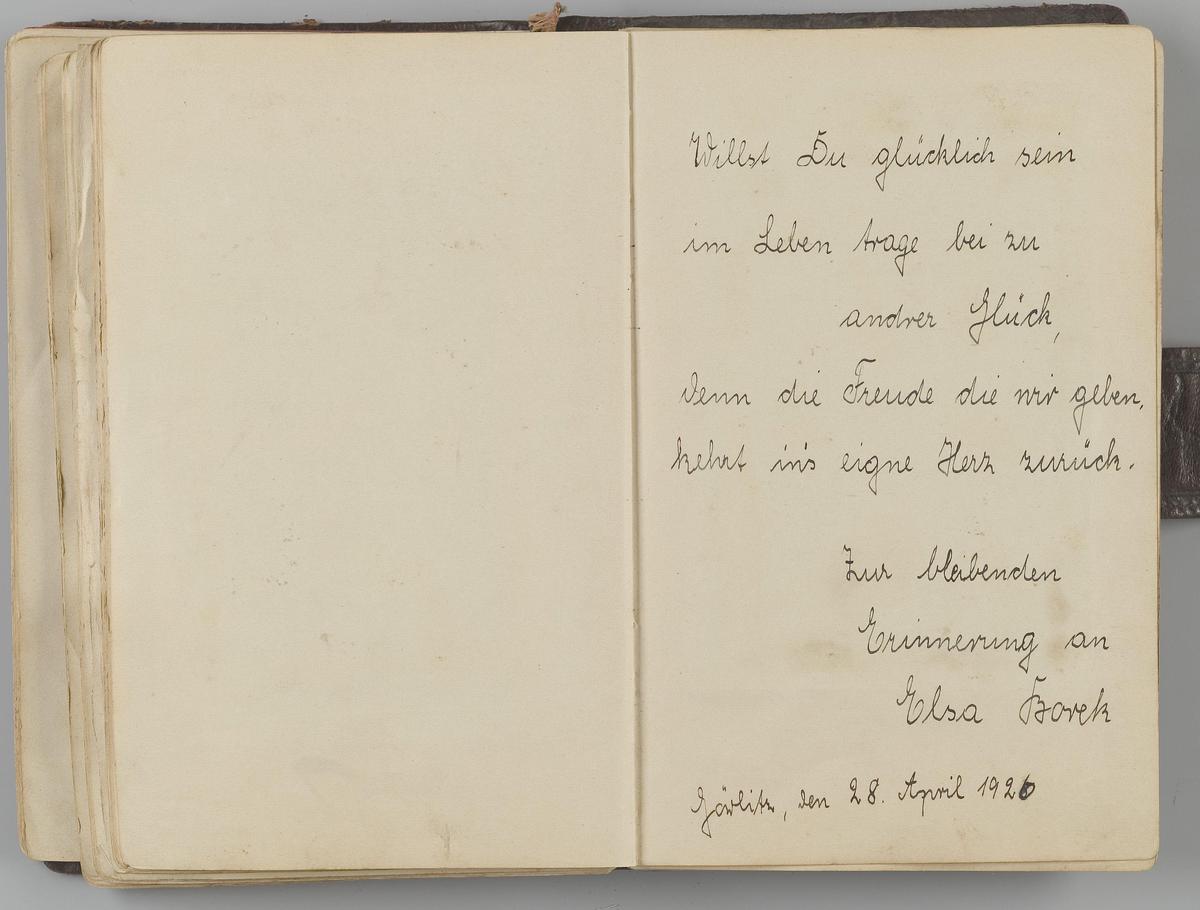 Willst Du glücklich sein
im Leben trage bei zu
andrer Glück,
denn die Freude die wir geben,
kehrt in's eigne Herz zurück.
Zur bleibenden
Erinnerung an
Elsa
Görlitz, den 28. April